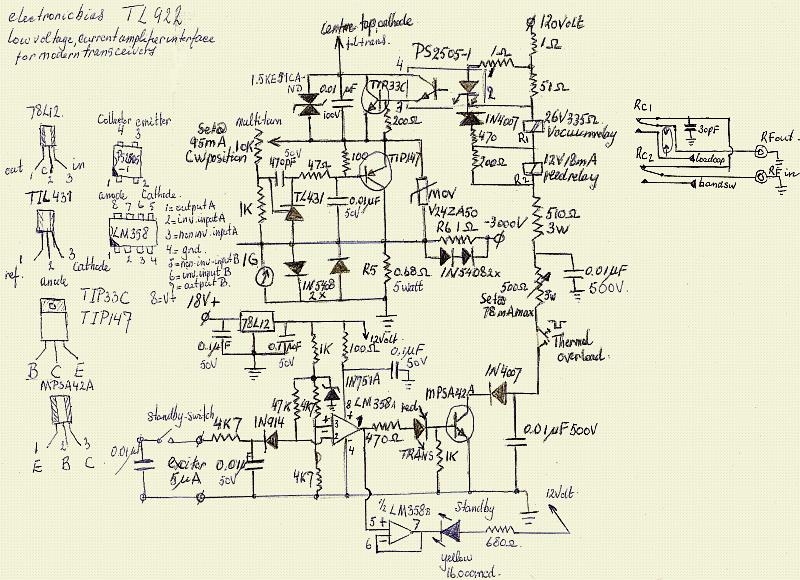 electronicbias TL922
low voltage, current amplifier interface
for modern transceivers
78L12
out c in
TIL431
ref. anode Cathode
TIP33C
TIP147
B C E
MPSA42A
1 2 3
E B C
Collector emitter
4 3
PS2505
-1
1 2
anode Cathode.
8 7 6 5
LM358
1 2 3 4
1= output A
2= inv. input A
3= non inv. input A
4= gnd.
5= non-inv-input B
6= inv. input B
7= output B.
8= V+
centre tap, cathode
fil trans.
1.5KE51CA
0.01 µF
100V
TIP33C
PS2505-1
4
3
1
2
1Ω
120VOLT
1Ω
51Ω
200Ω
1N4007
470
200Ω
26V 335Ω
Vacuumrelay
R1
12V 18mA
reedrelay
R2
multiturn
10K
Set@
95mA
CW position
470pF
50V
47Ω
100
TIP147
TL431
0.01µF
50V
1K
MOV
V24ZA50
-3000V
R6 1Ω
1N5408 2x
510Ω
3W
IG
1N5408
2x
R5
0.68Ω
5watt
500Ω
3W
Set@
78mAmax
0.01µF
500V.
Thermal
overload.
18V+
78L12
0.1µF
50V
0.1µF
50V
12Volt.
1K
100Ω
0.1µF
50V
1N751A
47K
4K7
LM358A
8
3
2
1
4
470Ω
red
TRANS
MPSA42A
1K
1N4007
0.01µF 500V
4K7
Standby-switch
4K7
1N914
0.01µF
exciter
5µA
0.01µF
50V
½ LM358B
5 +
6 -
7
Standby
yellow
16.000mcd.
680Ω
12Volt.
RC1
30pF
loadcap
RC2
bandsw
RFout
RF in